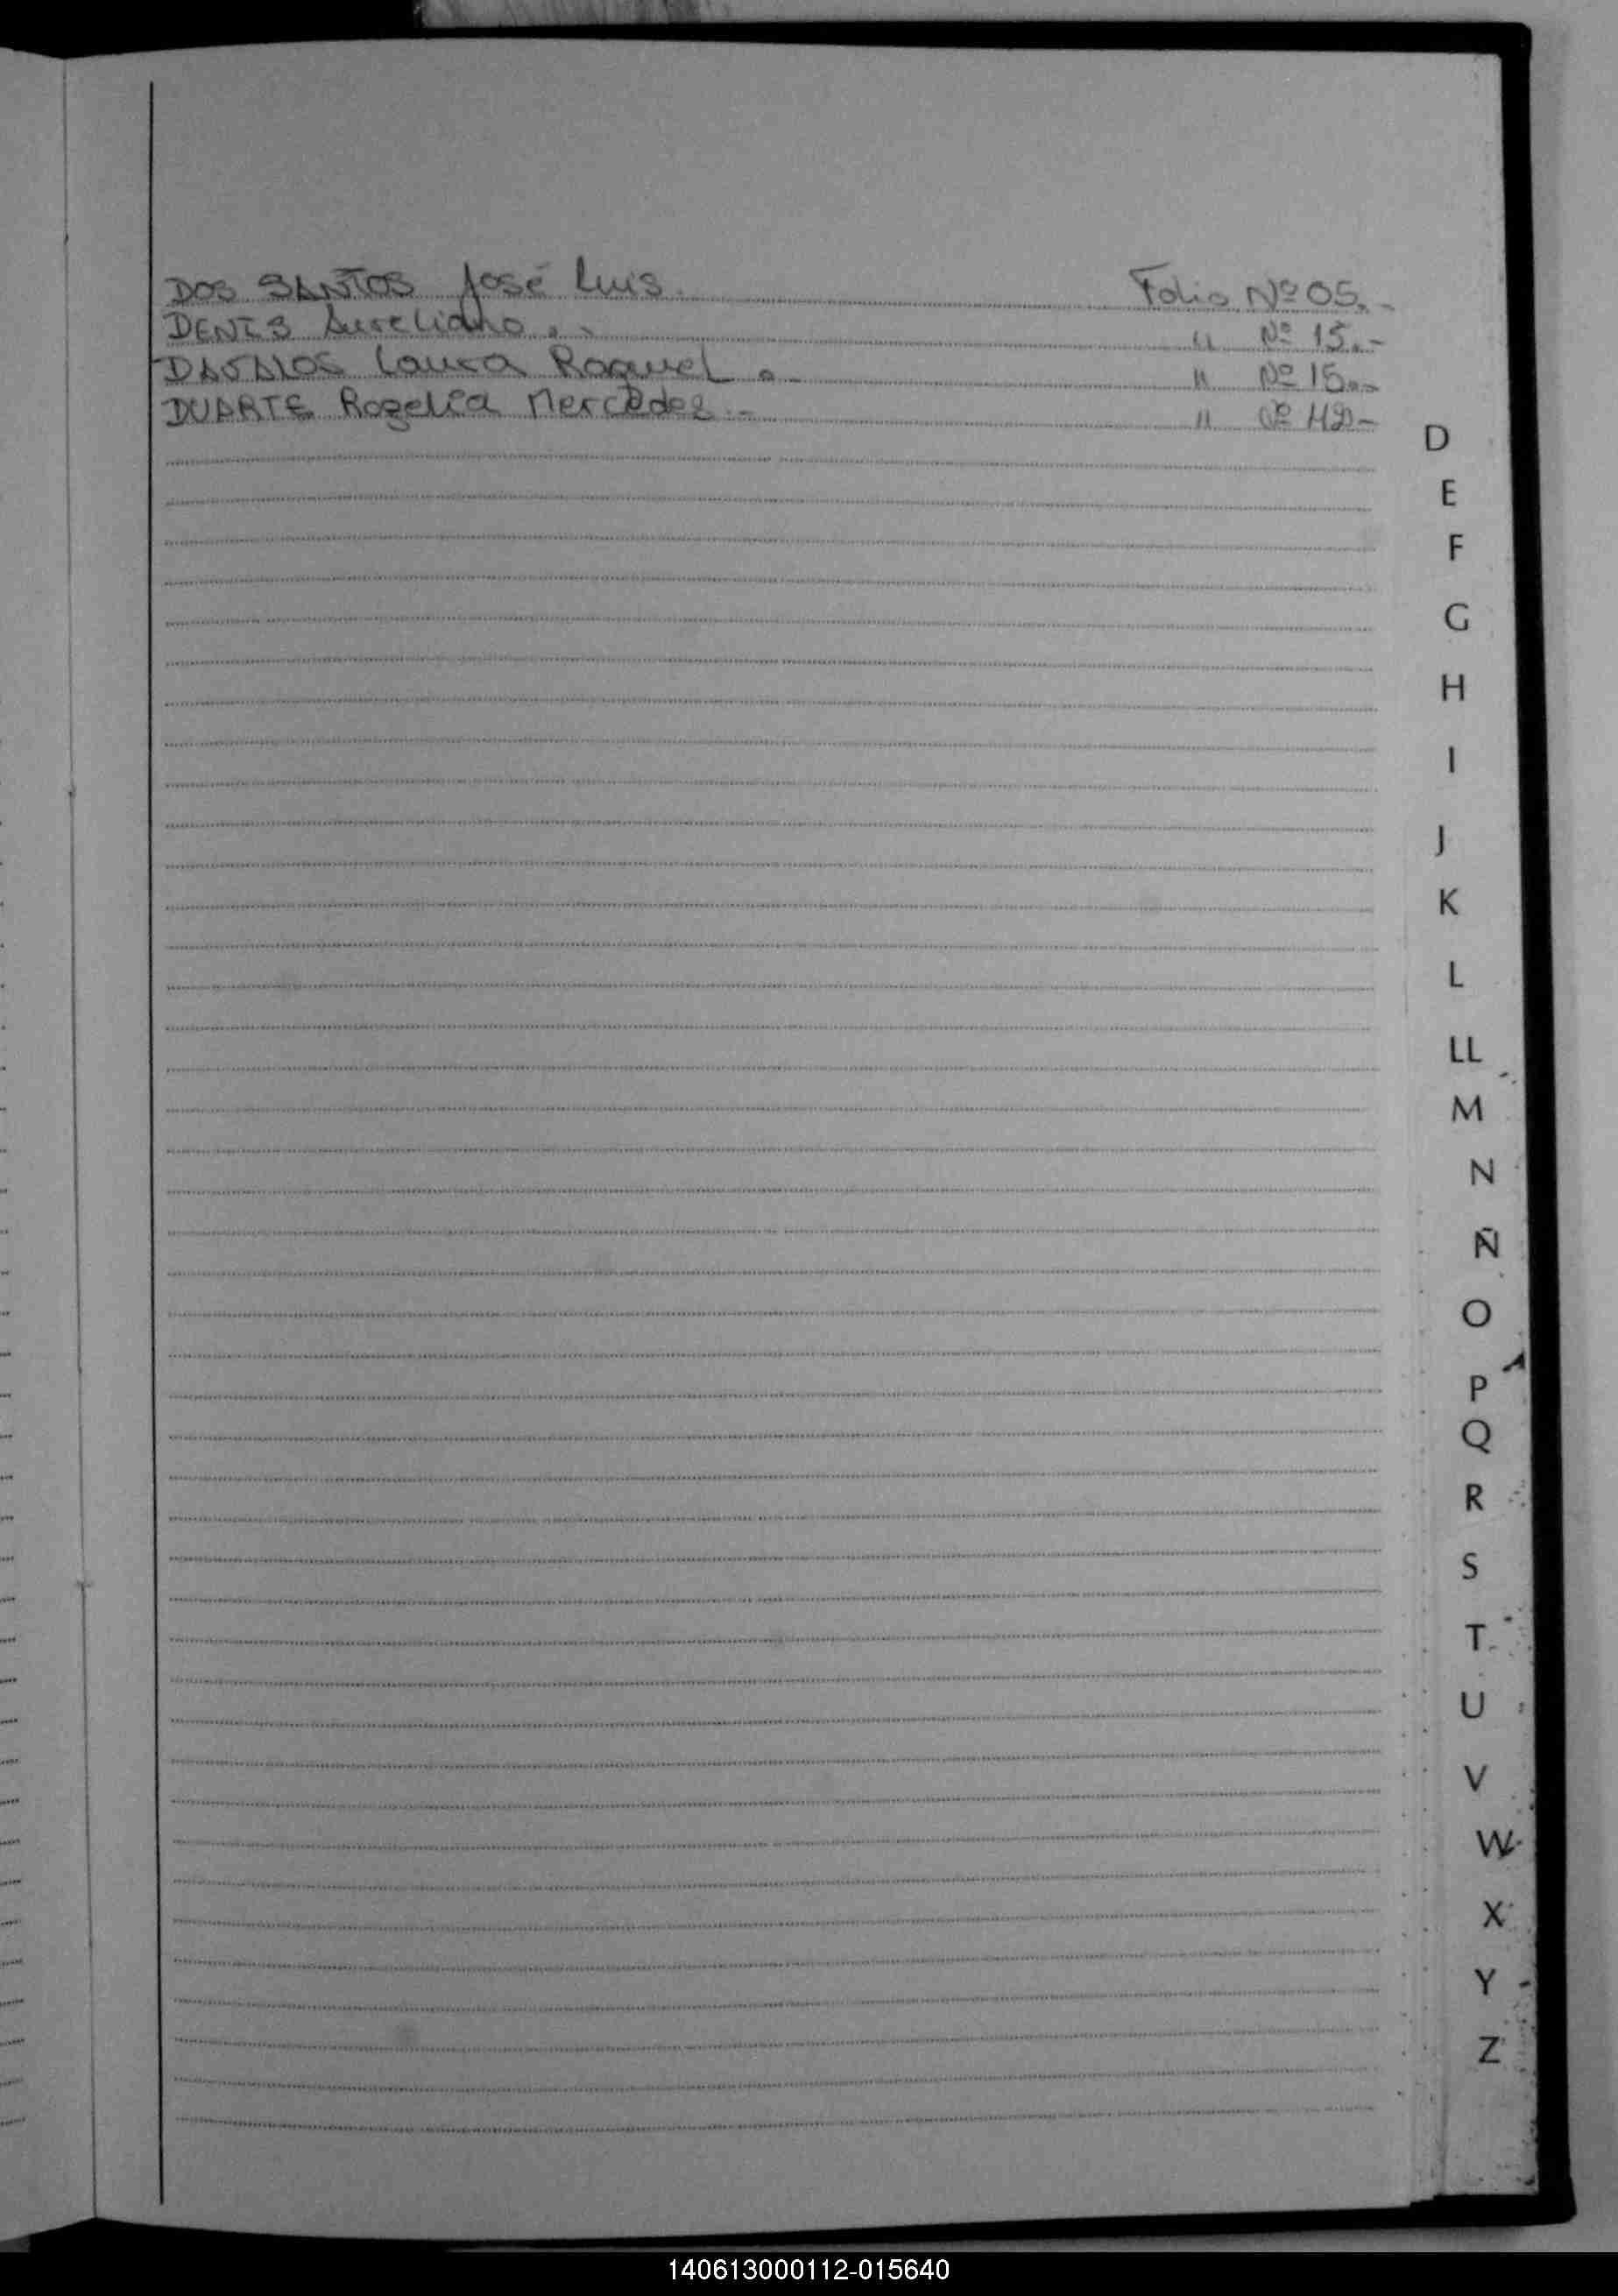 DOS SANTOS José Luis. Folio Nº 05.-
DENIS Aureliano.. " Nº 15.-
DAVALOS Laura Raquel. " Nº 15.-
DUARTE Rogelia Mercedes.- " Nº
D
E
F
G
H
I
J
K
L
LL
M
N
Ñ
O
P
Q
R
S
T
U
V
W
X
Y
Z
140613000112-015640